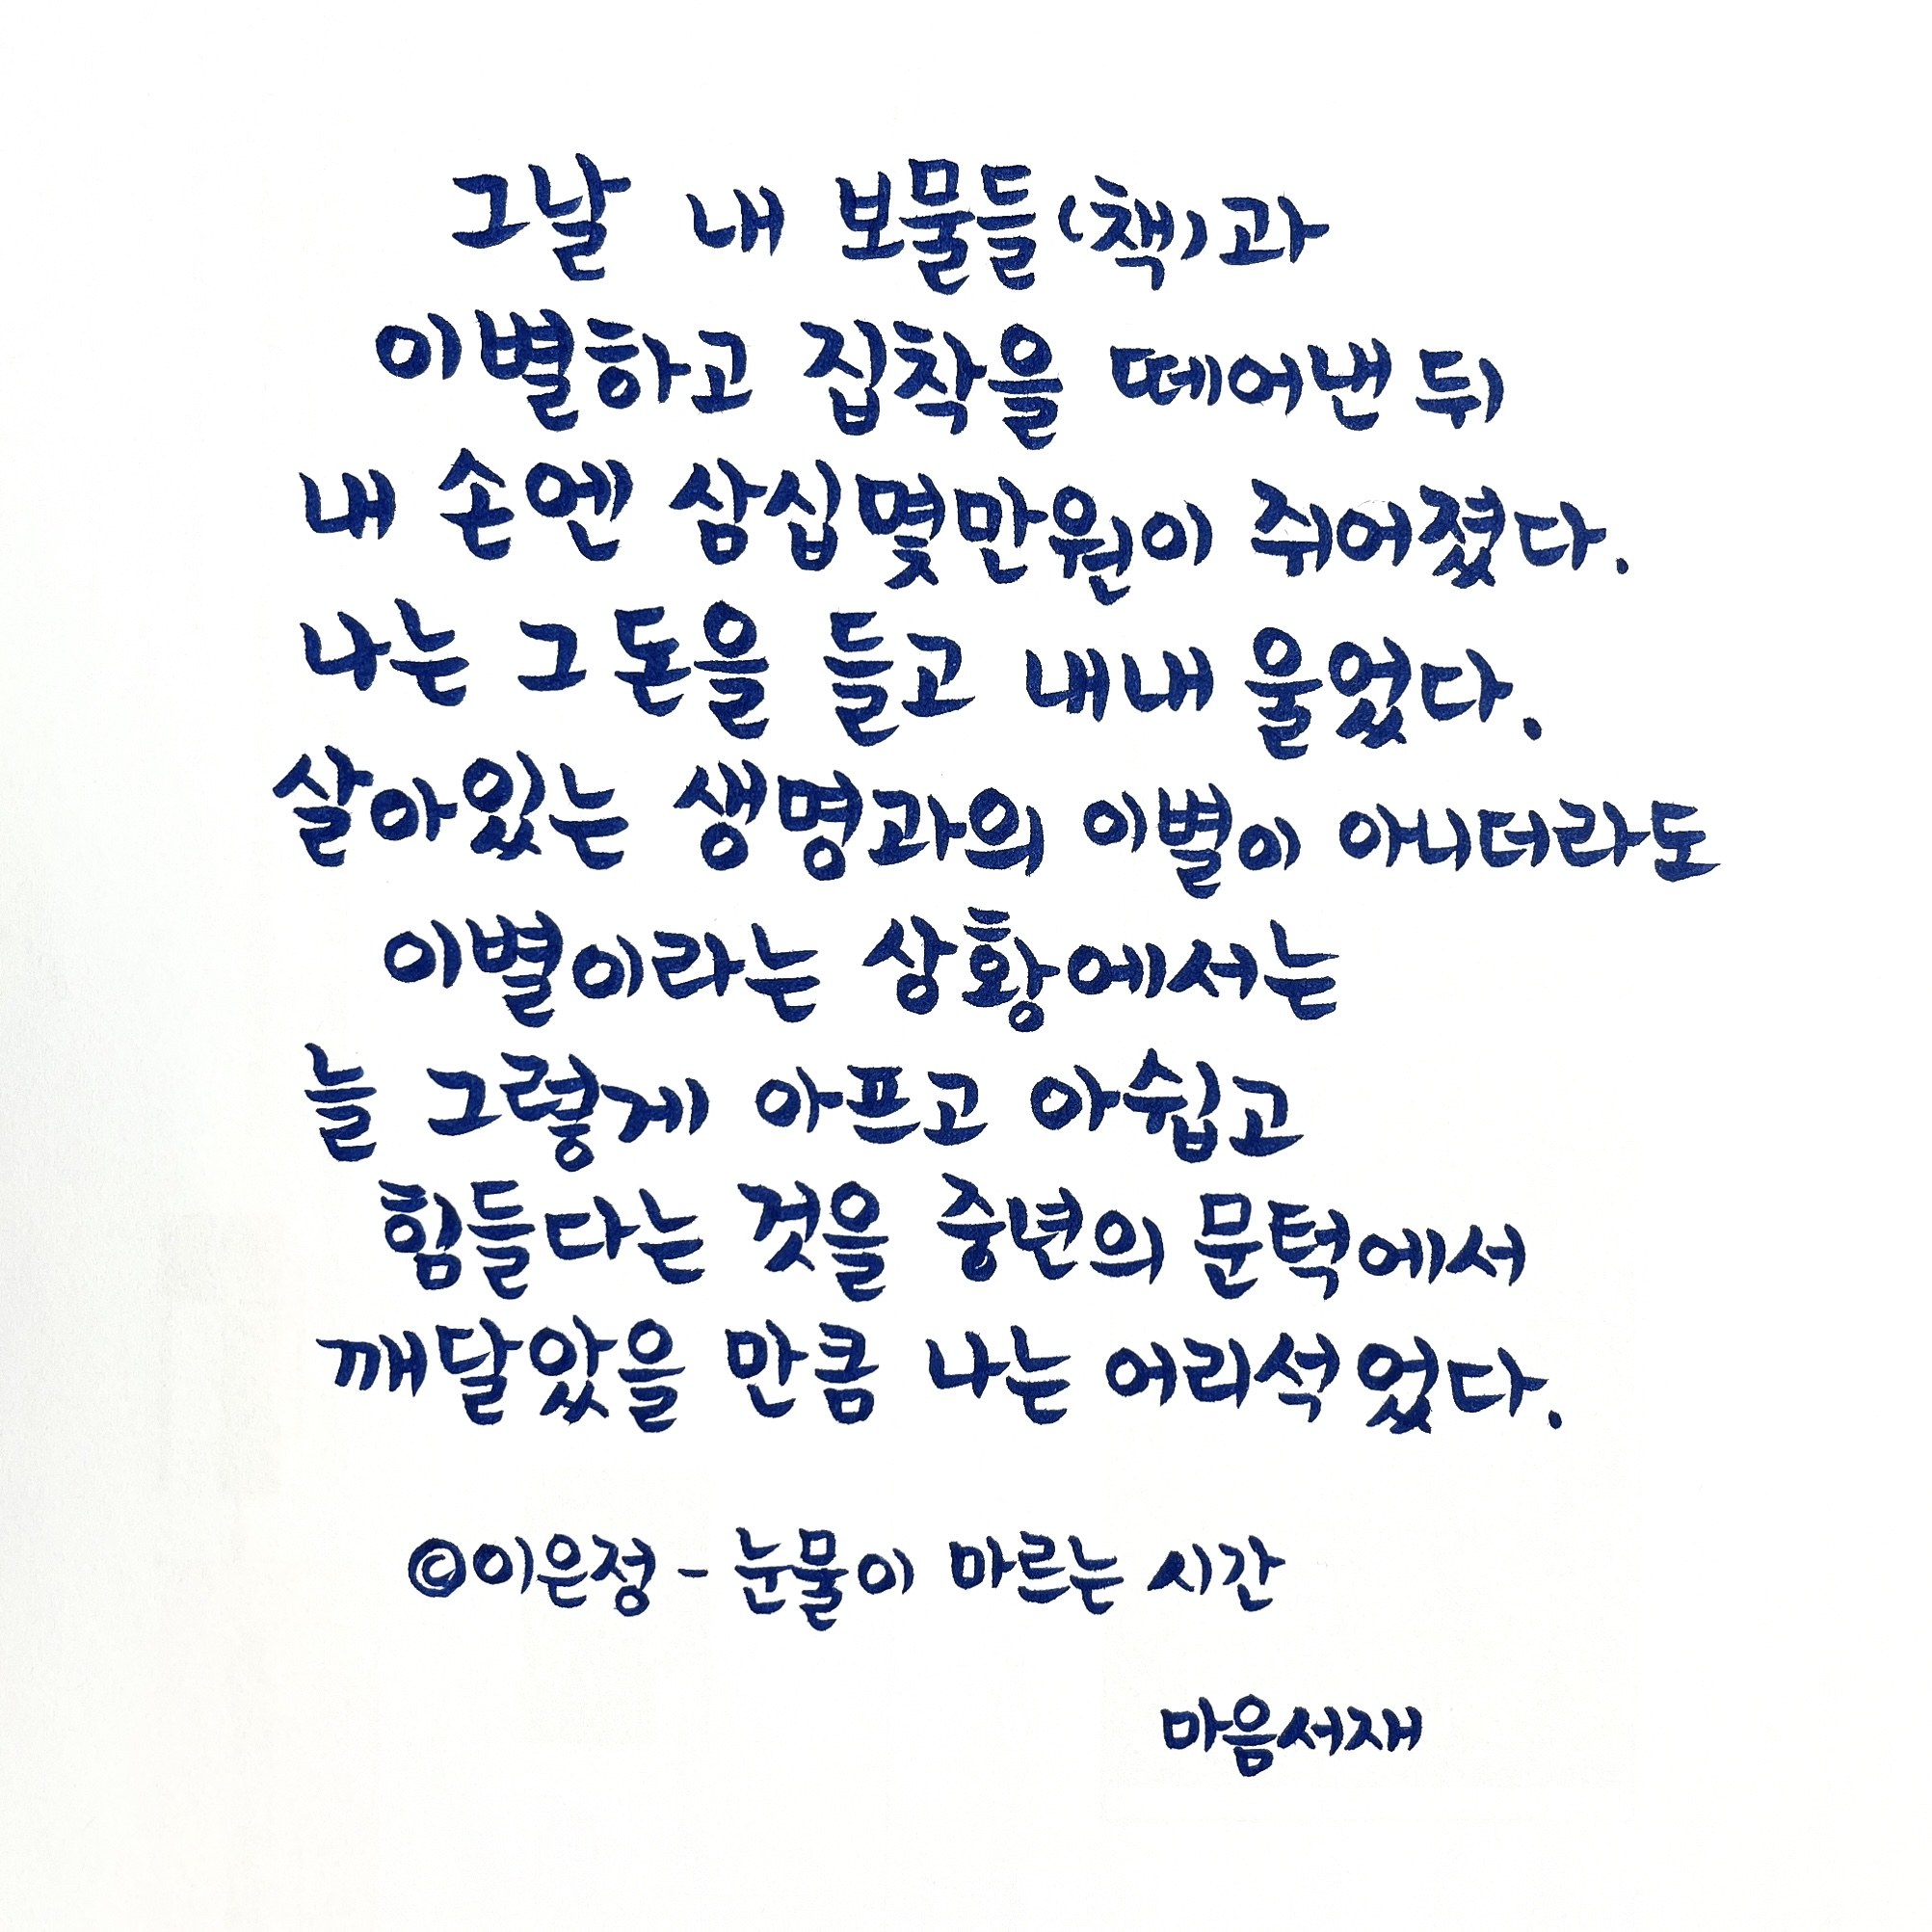 그날 내 보물들(책)과
이별하고 집착을 떼어낸 뒤
내 손엔 삼십몇만원이 쥐어졌다.
나는 그 돈을 들고 내내 울었다.
살아있는 생명과의 이별이 아니더라도
이별이라는 상황에서는
늘 그렇게 아프고 아쉽고
힘들다는 것을 중년의 문턱에서
깨달았을 만큼 나는 어리석었다.
©이은정 - 눈물이 마르는 시간
마음서재